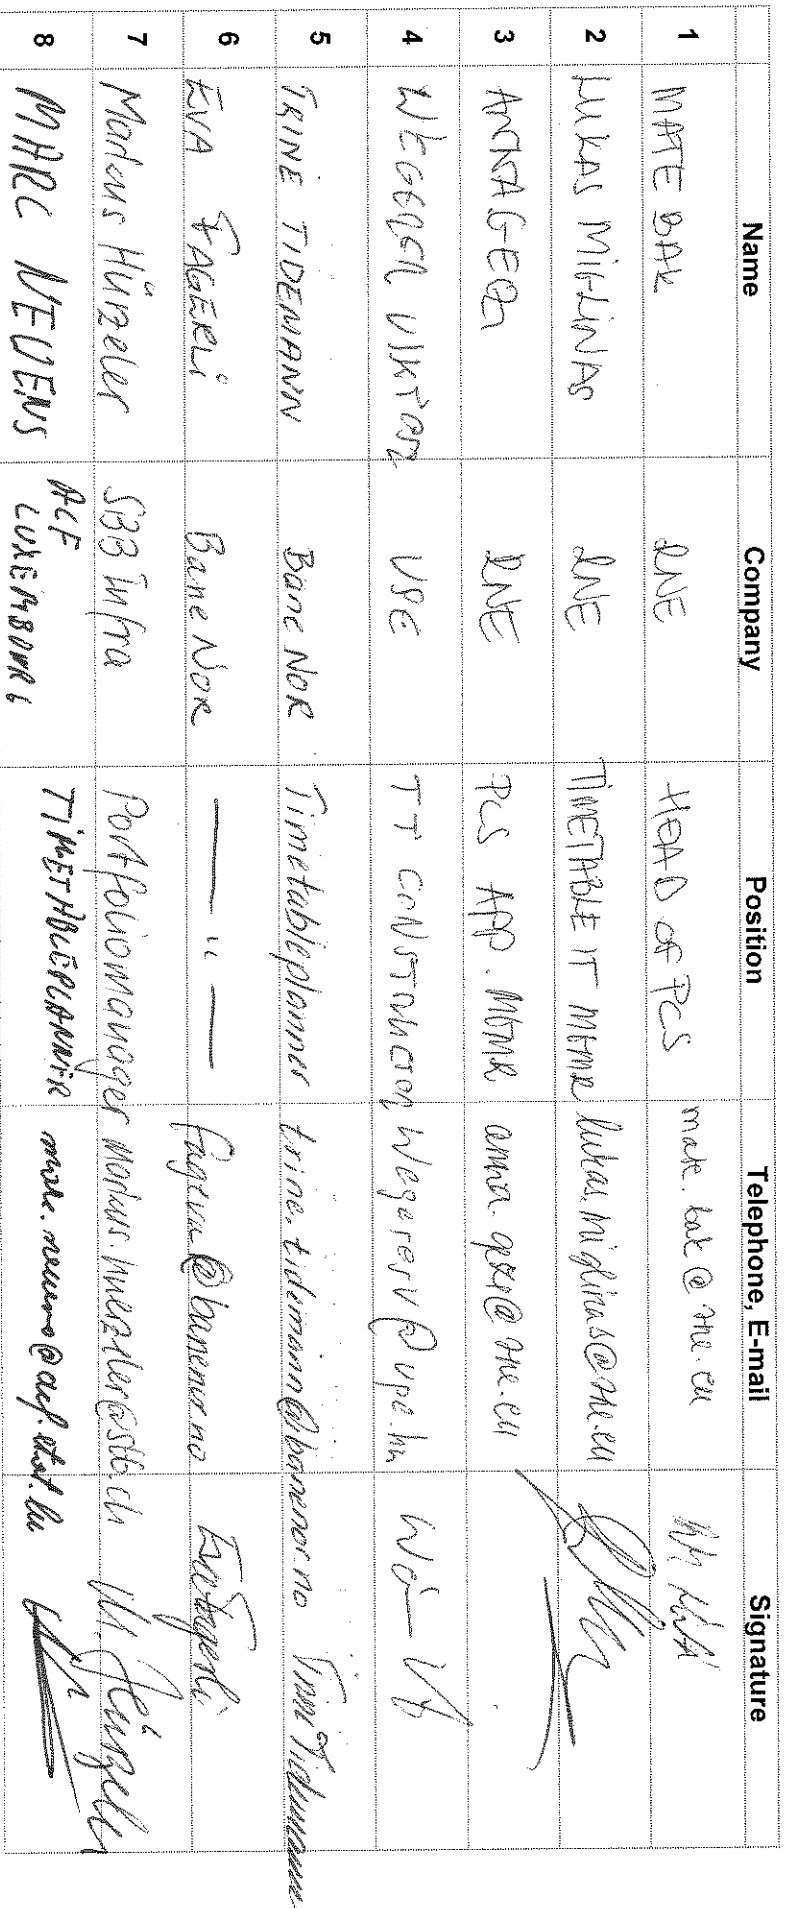 Name Company Position Telephone, E-mail Signature
1 MATE BAK RNE HEAD OF PCS mate.bak@rne.eu
2 LUKAS MIGLINAS RNE TIMETABLE IT MGMR lukas.miglinas@rne.eu
3 ANNA GERI RNE PCS APP. MGMR anna.geri@rne.eu
4 WEGERER VIKTOR VPE TT CONSTRUCTION wegererv@vpe.hu
5 TRINE TIDEMANN Bane NOR Timetableplanner trine.tidemann@banenor.no Trine Tidemann
6 EVA FAGERLI Bane NOR — " — fageva@banenor.no Eva Fagerli
7 Markus Hürzeler SBB Infra Portfoliomanager markus.huerzeler@sbb.ch M. Hürzeler
8 MARC NEUENS ACF TIMETABLEPLANNER marc.neuens@acf.etat.lu
LUXEMBOURG